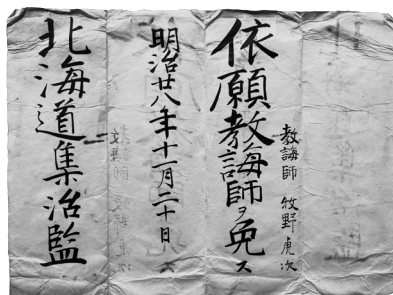 教誨師 牧野虎次
依願教誨師ヲ免ス
明治廿八年十一月二十日
北海道集治監